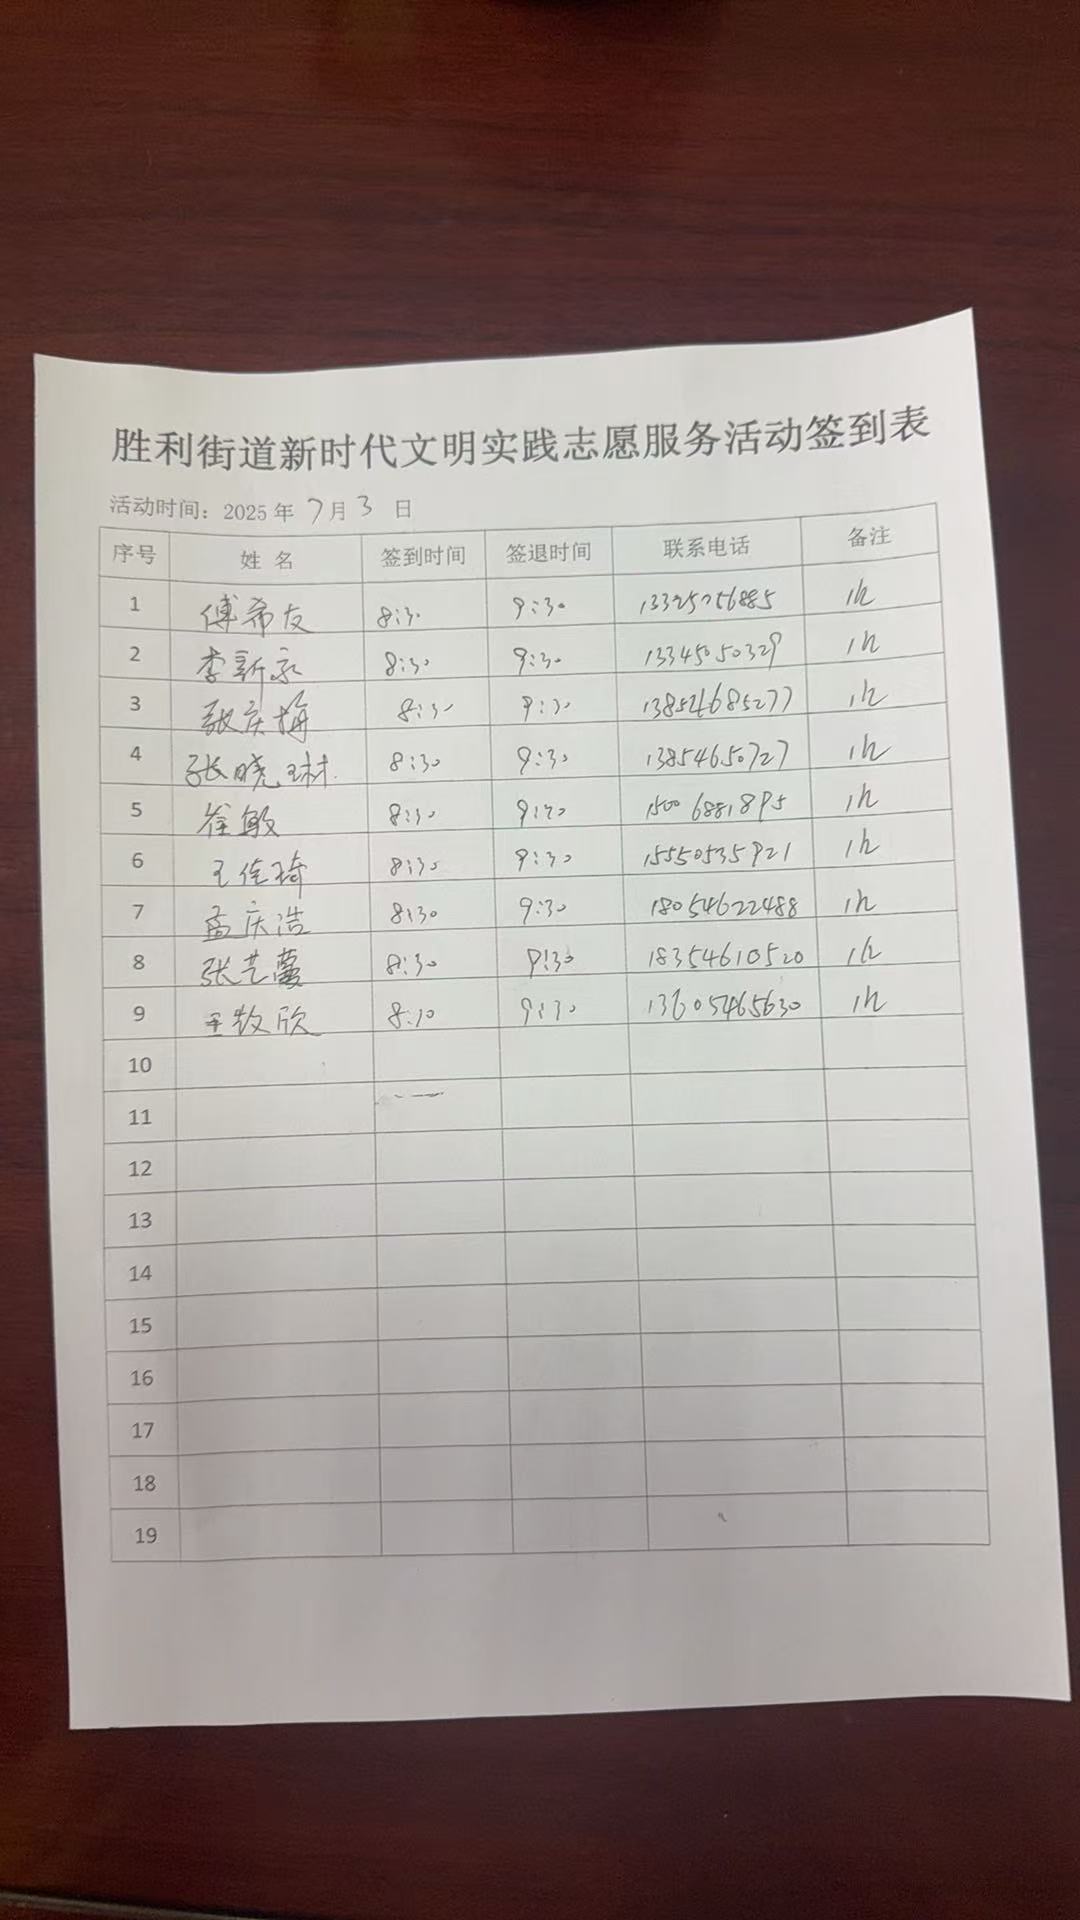 胜利街道新时代文明实践志愿服务活动签到表
活动时间：2025年 7月 3 日
序号 姓 名 签到时间 签退时间 联系电话 备注
1 傅希友 8:30 9:30 13325256885 1h
2 李新永 8:30 9:30 13345050329 1h
3 张庆梅 8:30 9:30 13854685277 1h
4 张晓琳 8:30 9:30 13854650727 1h
5 崔敏 8:30 9:30 15006881895 1h
6 王佳琦 8:30 9:30 15550535921 1h
7 孟庆浩 8:30 9:30 18054622488 1h
8 张艺蔓 8:30 9:30 18354610520 1h
9 王牧欣 8:30 9:30 13605465630 1h
10
11
12
13
14
15
16
17
18
19